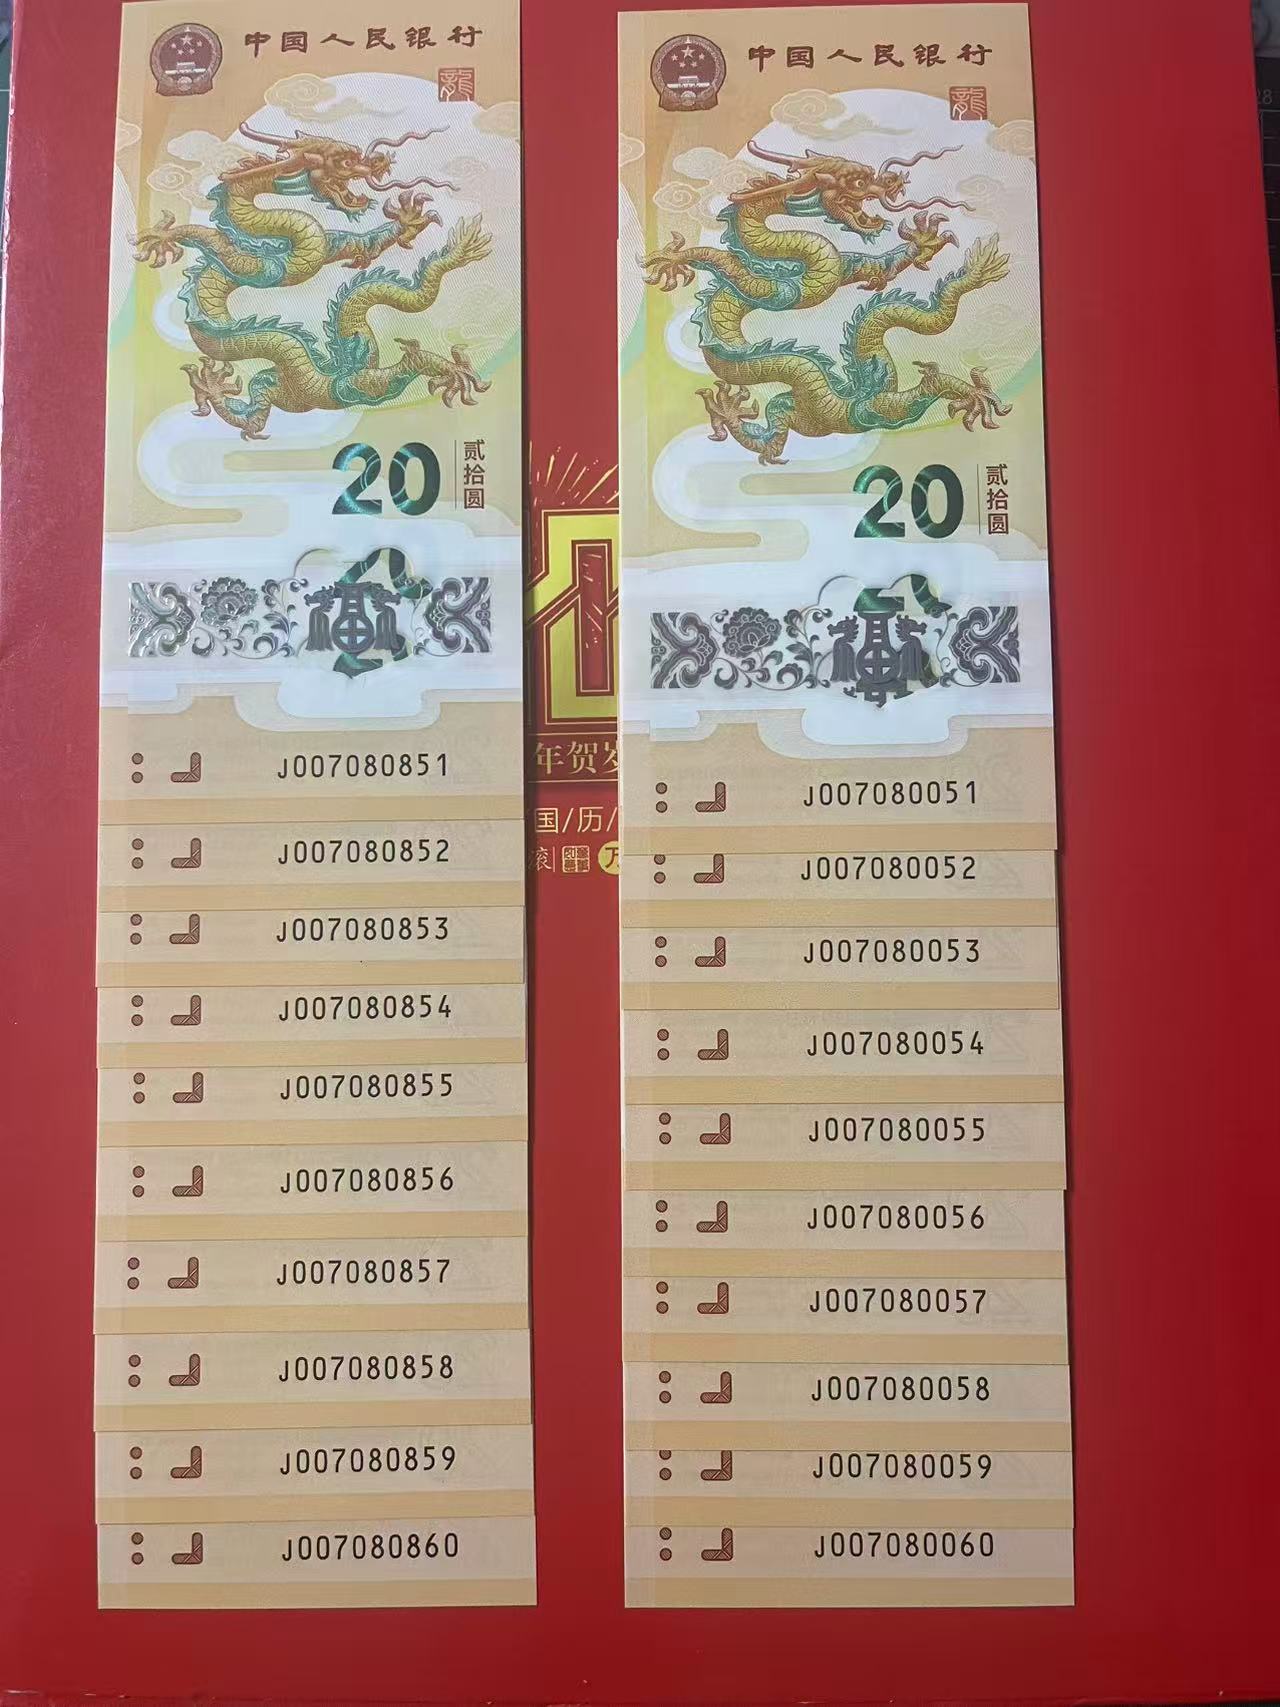 中国人民银行
龍
20
贰拾圆
J007080851
J007080852
J007080853
J007080854
J007080855
J007080856
J007080857
J007080858
J007080859
J007080860
中国人民银行
龍
20
贰拾圆
J007080051
J007080052
J007080053
J007080054
J007080055
J007080056
J007080057
J007080058
J007080059
J007080060
年贺岁
国/历/
滚
28